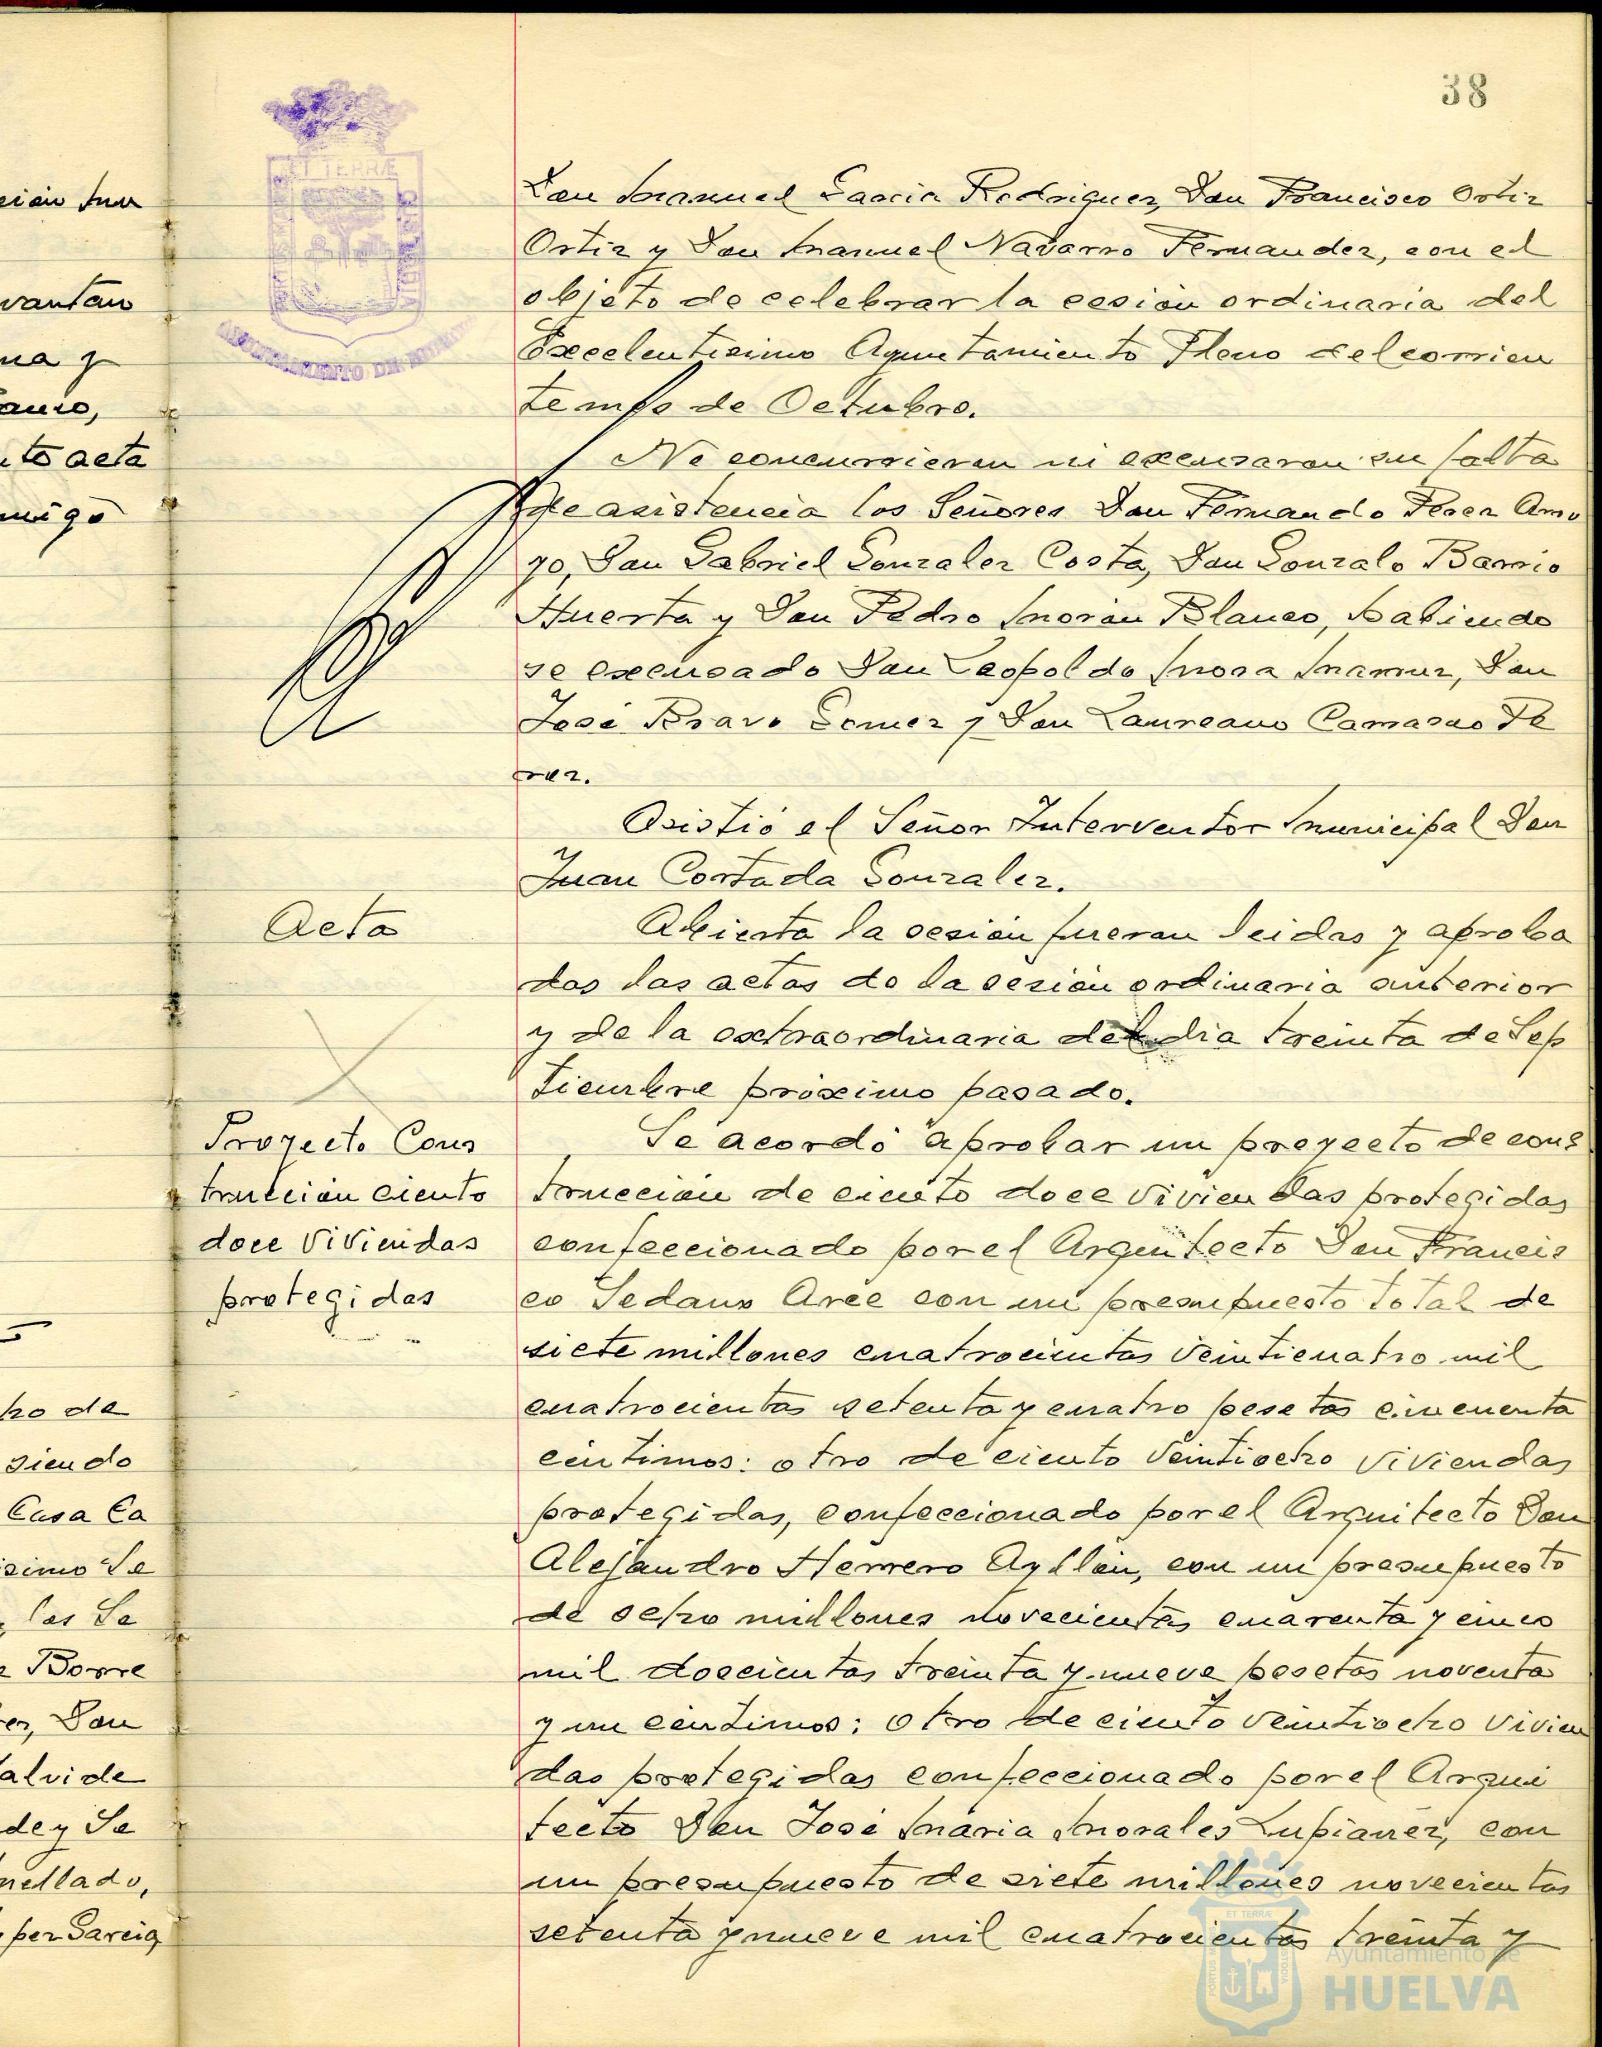 38
Don Manuel Garcia Rodriguez, Don Francisco Ortiz
Ortiz y Don Manuel Navarro Fernandez, con el
objeto de celebrar la sesión ordinaria del
Excelentisimo Ayuntamiento Pleno del corrien
te mes de Octubre.
No concurrieron ni excusaron su falta
de asistencia los Señores Don Fernando Perez Arro
yo, Don Gabriel Gonzalez Costa, Don Gonzalo Barrio
Huerta y Don Pedro Morón Blanco, habiendo
se excusado Don Leopoldo Mora Don
José Bravo Gomez y Don Laureano Camasao Pe
rez.
Asistió el Señor Interventor Municipal Don
Juan Cortada Gonzalez.
Acta
Abierta la sesión fueron leidas y aproba
das las actas de la sesión ordinaria anterior
y de la extraordinaria del dia treinta de Sep
tiembre próximo pasado.
Proyecto Cons
trucción ciento
doce viviendas
protegidas
Se acordó aprobar un proyecto de cons
trucción de ciento doce viviendas protegidas
confeccionado por el Arquitecto Don Francis
co Sedano Arce con un presupuesto total de
siete millones cuatrocientas veinticuatro mil
cuatrocientas setenta y cuatro pesetas cincuenta
céntimos: otro de ciento veintiocho viviendas
protegidas, confeccionado por el Arquitecto Don
Alejandro Herrero Ayllón, con un presupuesto
de ocho millones novecientas cuarenta y cinco
mil doscientas treinta y nueve pesetas noventa
y un céntimos; otro de ciento veintiocho vivien
das protegidas confeccionado por el Arqui
tecto Don José Maria Morales Lupiañez, con
un presupuesto de siete millones novecientas
setenta y nueve mil cuatrocientas treinta y
ET TERRÆ
AYUNTAMIENTO DE HUELVA
vantan
na y
to acta
migo
ho de
siendo
Casa Ca
simo Se
los Se
Borre
Don
alvide
de y Se
mellado,
Garcia,
ET TERRÆ
Ayuntamiento de
HUELVA